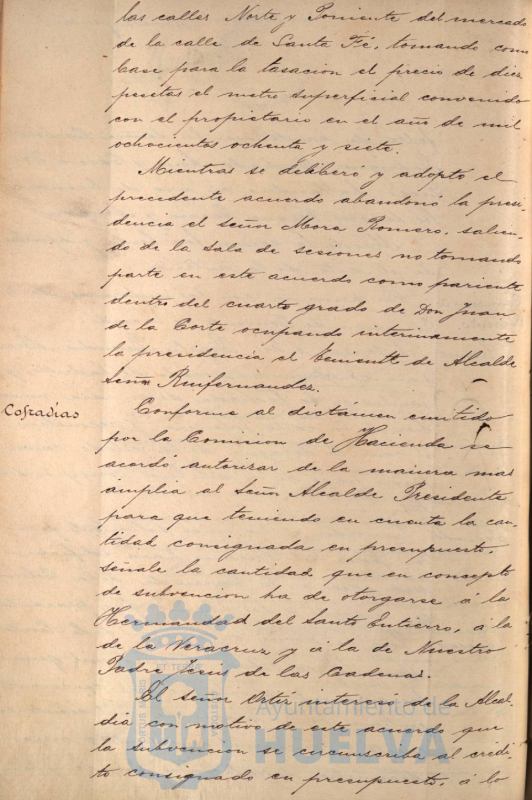 las calles Norte y Poniente del mercado
de la calle de Santa Fé, tomando como
base para la tasacion el precio de diez
pesetas el metro superficial convenido
con el propietario en el año de mil
ochocientos ochenta y siete.
Mientras se deliberó y adoptó el
precedente acuerdo abandonó la presi
dencia el señor Mora Romero, salien
do de la sala de sesiones no tomando
parte en este acuerdo como pariente
dentro del cuarto grado de Don Juan
de la Corte ocupando interinamente
la presidencia el teniente de Alcalde
Señor Ruifernandez.
Cofradias
Conforme al dictámen emitido
por la Comision de Hacienda se
acordó autorizar de la manera mas
amplia al Señor Alcalde Presidente
para que teniendo en cuenta la can-
tidad consignada en presupuesto,
señale la cantidad que en concepto
de subvencion ha de otorgarse á la
Hermandad del Santo Entierro, á la
de la Veracruz y á la de Nuestro
Padre Jesus de las Cadenas.
El señor Ortiz interesó de la Alcal-
dia con motivo de este acuerdo que
la subvencion se circunscriba al crédi-
to consignado en presupuesto, á lo
Ayuntamiento de
HUELVA